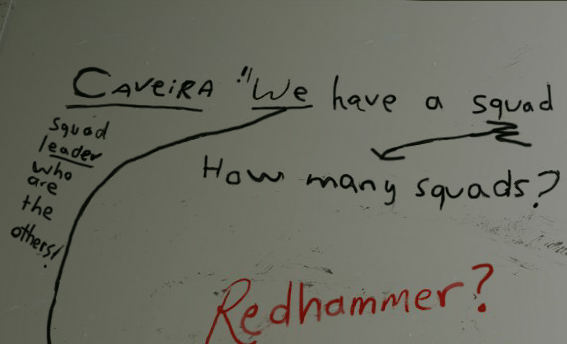 CAVEIRA "We have a squad
squad
leader
who
are
the
others!
How many squads?
Redhammer?